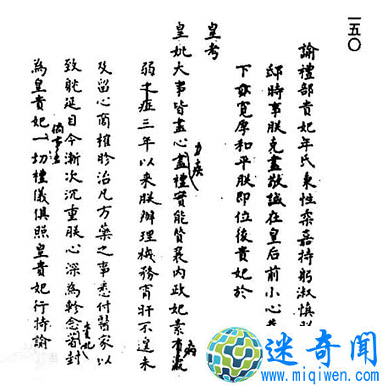 一五〇
諭禮部貴妃年氏秉性柔嘉持躬淑慎
邸時事朕克盡敬誠在皇后前小心
下亦寬厚和平朕即位後貴妃於
皇考
皇妣大事皆盡心力疾盡禮實能贊襄內政妃素有病
弱之症三年以來朕辦理機務宵旰不遑未
及留心商榷胗治凡方藥之事悉付醫家以
致耽延目今漸次沉重朕心深為軫念著封
為皇貴妃一切禮儀俱照皇貴妃行特諭
迷奇闻
www.miqiwen.com